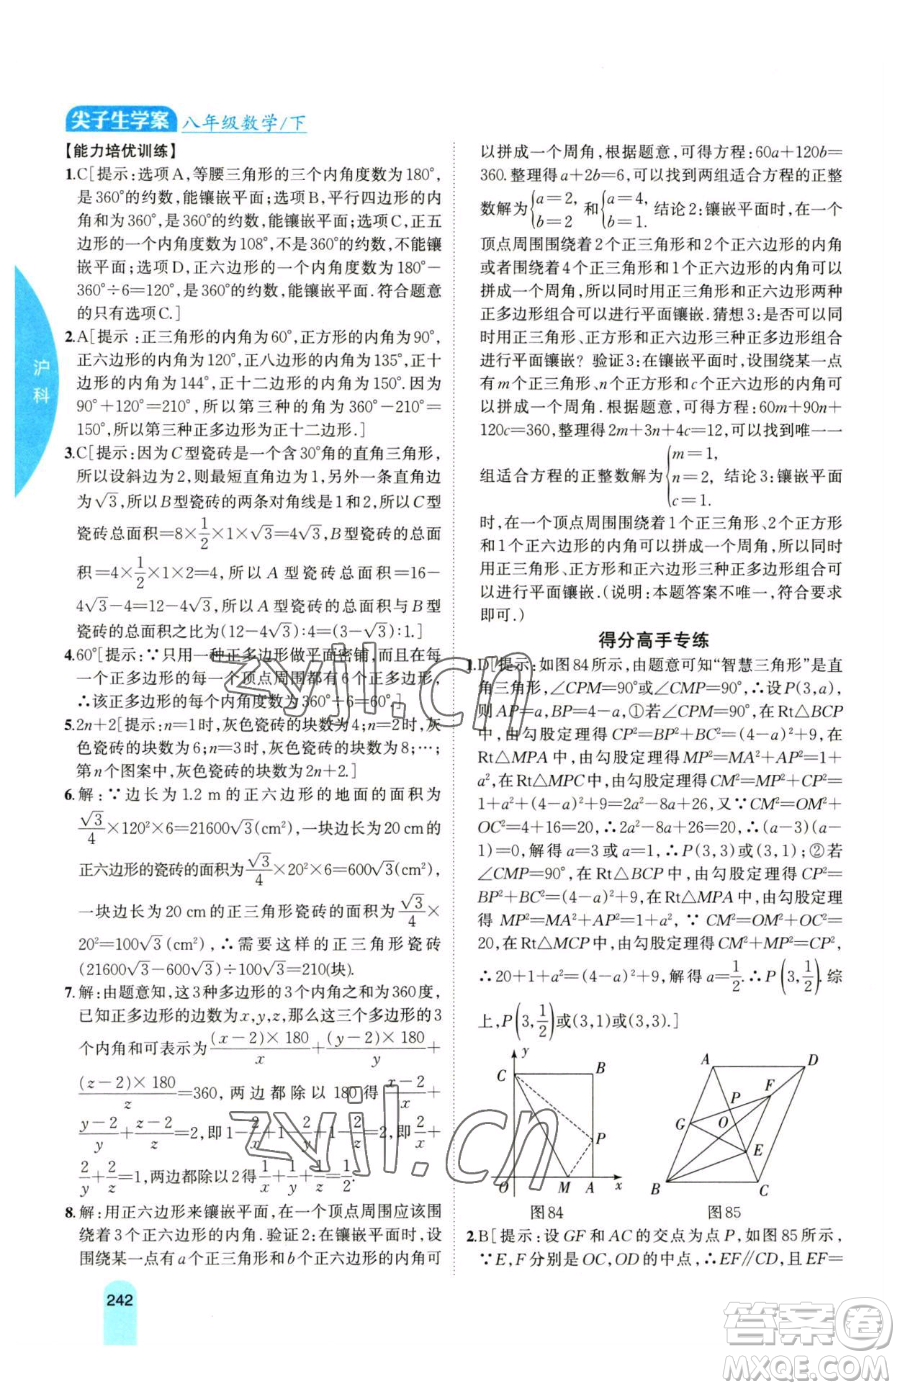 尖子生学案 八年级数学/下
【能力培优训练】
1.C[提示:选项A,等腰三角形的三个内角度数为180°,
是360°的约数,能镶嵌平面;选项B,平行四边形的内
角和为360°,是360°的约数,能镶嵌平面;选项C,正五
边形的一个内角度数为108°,不是360°的约数,不能镶
嵌平面;选项D,正六边形的一个内角度数为180°−
360°÷6=120°,是360°的约数,能镶嵌平面.符合题意
的只有选项C.]
2.A[提示:正三角形的内角为60°,正方形的内角为90°,
正六边形的内角为120°,正八边形的内角为135°,正十
边形的内角为144°,正十二边形的内角为150°.因为
90°+120°=210°,所以第三种的角为360°−210°=
150°,所以第三种的正多边形为正十二边形.]
3.C[提示:因为C型瓷砖是一个含30°角的直角三角形,
所以设斜边为2,则最短直角边为1,另外一条直角边
为√3,所以B型瓷砖的两条对角线是1和2,所以C型
瓷砖总面积=8×1/2×1×√3=4√3,B型瓷砖的总面
积=4×1/2×1×2=4,所以A型瓷砖的总面积=16−
4√3−4=12−4√3,所以A型瓷砖的总面积与B型
瓷砖的总面积之比为(12−4√3):4=(3−√3):1.]
4.60°[提示:∵只用一种正多边形铺满平面密铺,而且在
每一个正多边形的每一个顶点周围都有6个正多边形,
∴该正多边形的每个内角度数为360°÷6=60°.]
5.2n+2[提示:n=1时,灰色瓷砖的块数为4;n=2时,灰
色瓷砖的块数为6;n=3时,灰色瓷砖的块数为8;…;
第n个图案中,灰色瓷砖的块数为2n+2.]
6.解:∵边长为1.2 m的正六边形的地面的面积为
√3/4×120²×6=21600√3(cm²),一块边长为20 cm的
正六边形的瓷砖的面积为√3/4×20²×6=600√3(cm²),
一块边长为20 cm的正三角形瓷砖的面积为√3/4×
20²=100√3(cm²),∴需要这样的正三角形瓷砖
(21600√3−600√3)÷100√3=210(块).
7.解:由题意知,这3种多边形的3个内角之和为360度,
已知正多边形的边数为x,y,z,那么这三个多边形的3
个内角和可表示为(x−2)×180/x+(y−2)×180/y+
(z−2)×180/z=360,两边都除以180得x−2/x+
y−2/y+z−2/z=2,即1−2/x+1−2/y+1−2/z=2,即2/x+
2/y+2/z=1,两边都除以2得1/x+1/y+1/z=1/2.
8.解:用正六边形来镶嵌平面,在一个顶点周围应该围
绕着3个正六边形的内角.验证2:在镶嵌平面时,设
围绕某一点有a个正三角形和b个正六边形的内角可
242
沪科
以拼成一个周角,根据题意,可得方程:60a+120b=
360.整理得a+2b=6,可以找到两组适合方程的正整
数解为{a=2,b=2 和{a=4,b=1. 结论2:镶嵌平面时,在一个
顶点周围围绕着2个正三角形和2个正六边形的内角
或者围绕着4个正三角形和1个正六边形的内角可以
拼成一个周角,所以同时用正三角形和正六边形两种
正多边形组合可以进行平面镶嵌.猜想3:是否可以同
时用正三角形、正方形和正六边形三种正多边形组合
进行平面镶嵌?验证3:在镶嵌平面时,设围绕某一点
有m个正三角形、n个正方形和c个正六边形的内角可
以拼成一个周角.根据题意,可得方程:60m+90n+
120c=360,整理得2m+3n+4c=12,可以找到唯一一
组适合方程的正整数解为{m=1,n=2,c=1. 结论3:镶嵌平面
时,在一个顶点周围围绕着1个正三角形、2个正方形
和1个正六边形的内角可以拼成一个周角,所以同时
用正三角形、正方形和正六边形三种正多边形组合可
以进行平面镶嵌.(说明:本题答案不唯一,符合要求
即可.)
得分高手专练
1.D[提示:如图84所示,由题意可知“智慧三角形”是直
角三角形,∠CPM=90°或∠CMP=90°.设P(3,a),
则AP=a,BP=4−a,①若∠CPM=90°,在Rt△BCP
中,由勾股定理得CP²=BP²+BC²=(4−a)²+9,在
Rt△MPA中,由勾股定理得MP²=MA²+AP²=1+
a²,在Rt△MPC中,由勾股定理得CM²=MP²+CP²=
1+a²+(4−a)²+9=2a²−8a+26,又∵CM²=OM²+
OC²=4+16=20,∴2a²−8a+26=20,∴(a−3)(a−
1)=0,解得a=3或a=1,∴P(3,3)或(3,1);②若
∠CMP=90°,在Rt△BCP中,由勾股定理得CP²=
BP²+BC²=(4−a)²+9,在Rt△MPA中,由勾股定理
得MP²=MA²+AP²=1+a²,∵CM²=OM²+OC²=
20,在Rt△MCP中,由勾股定理得CM²+MP²=CP²,
∴20+1+a²=(4−a)²+9,解得a=1/2.∴P(3,1/2).综
上,P(3,1/2)或(3,1)或(3,3).]
y
C B
P
O M A x
图84
A D
F
P
G O
E
B C
图85
2.B[提示:设GF和AC的交点为点P,如图85所示,
∵E,F分别是OC,OD的中点,∴EF∥CD,且EF=
zyjl.cn
zyjl.cn
答案圈
MXQE.COM